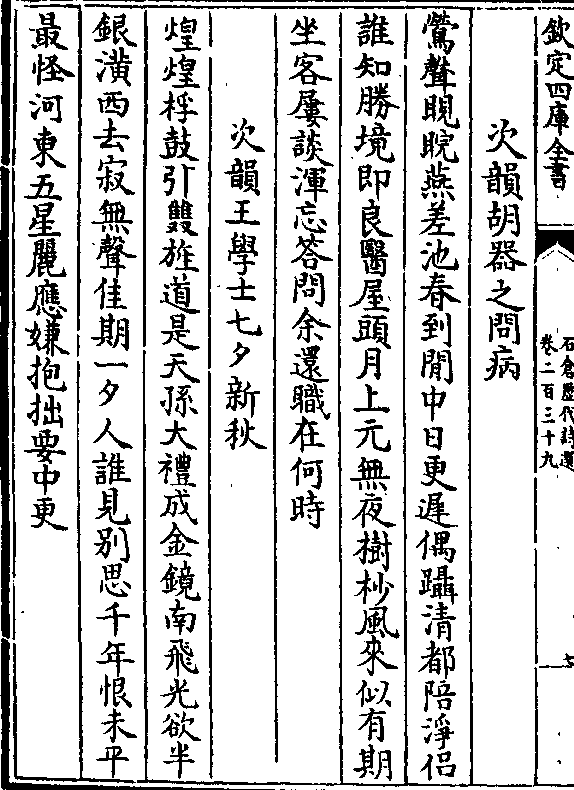 欽定四庫全書
石倉歷代詩選
卷二百三十九
七
次韻胡器之問病
鶯聲睍睆燕差池春到閒中日更遲偶躡清都陪淨侣
誰知勝境即良醫屋頭月上元無夜樹杪風來似有期
坐客屢談渾忘答問余還職在何時
次韻王學士七夕新秋
煌煌桴鼓引雙旌道是天孫大禮成金鏡南飛光欲半
銀潢西去寂無聲佳期一夕人誰見別思千年恨未平
最怪河東五星麗應嫌抱拙要中更